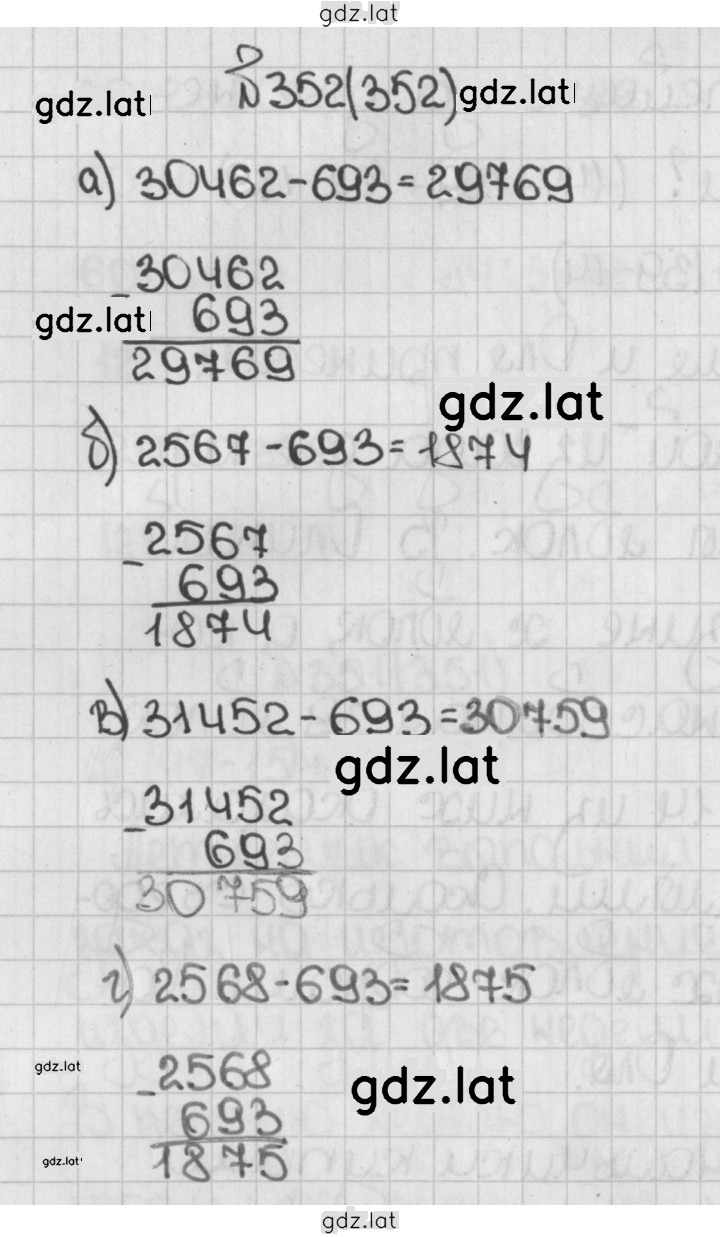 gdz.lat
№352(352) gdz.lat
gdz.lat
а) 30462-693=29769
30462
- 693
gdz.lat
29769
gdz.lat
б) 2567-693=1874
2567
- 693
1874
в) 31452-693=30759
gdz.lat
31452
- 693
30759
г) 2568-693=1875
gdz.lat
2568
- 693
gdz.lat
1875
gdz.lat
gdz.lat